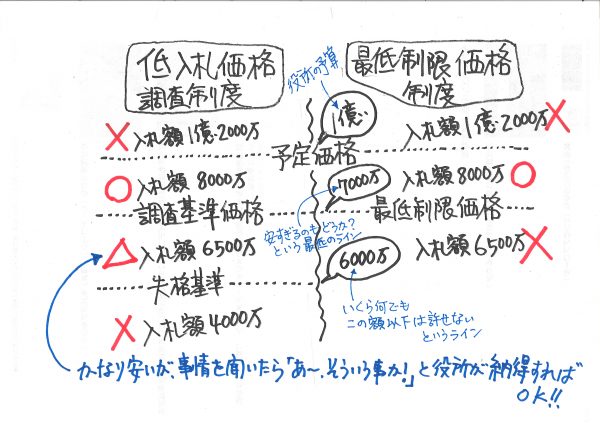 低入札価格
調査制度
最低制限価格
制度
役所の予算
1億
× 入札額1億2000万
入札額1億2000万 ×
予定価格
○ 入札額8000万
7000万
入札額8000万 ○
調査基準価格
最低制限価格
安すぎるのもどうか?
という最低のライン
△ 入札額6500万
6000万
入札額6500万 ×
失格基準
いくら何でも
この額以下は許せない
というライン
× 入札額4000万
かなり安いが、事情を聞いたら「あ〜、そういう事か!」と役所が納得すれば
OK!!